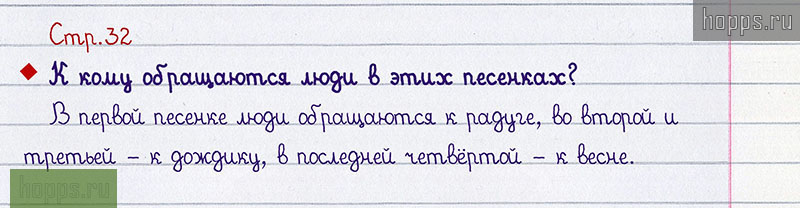 hopps.ru
Стр.32
К кому обращаются люди в этих песенках?
В первой песенке люди обращаются к радуге, во второй и
третьей – к дождику, в последней четвёртой – к весне.
hopps.ru